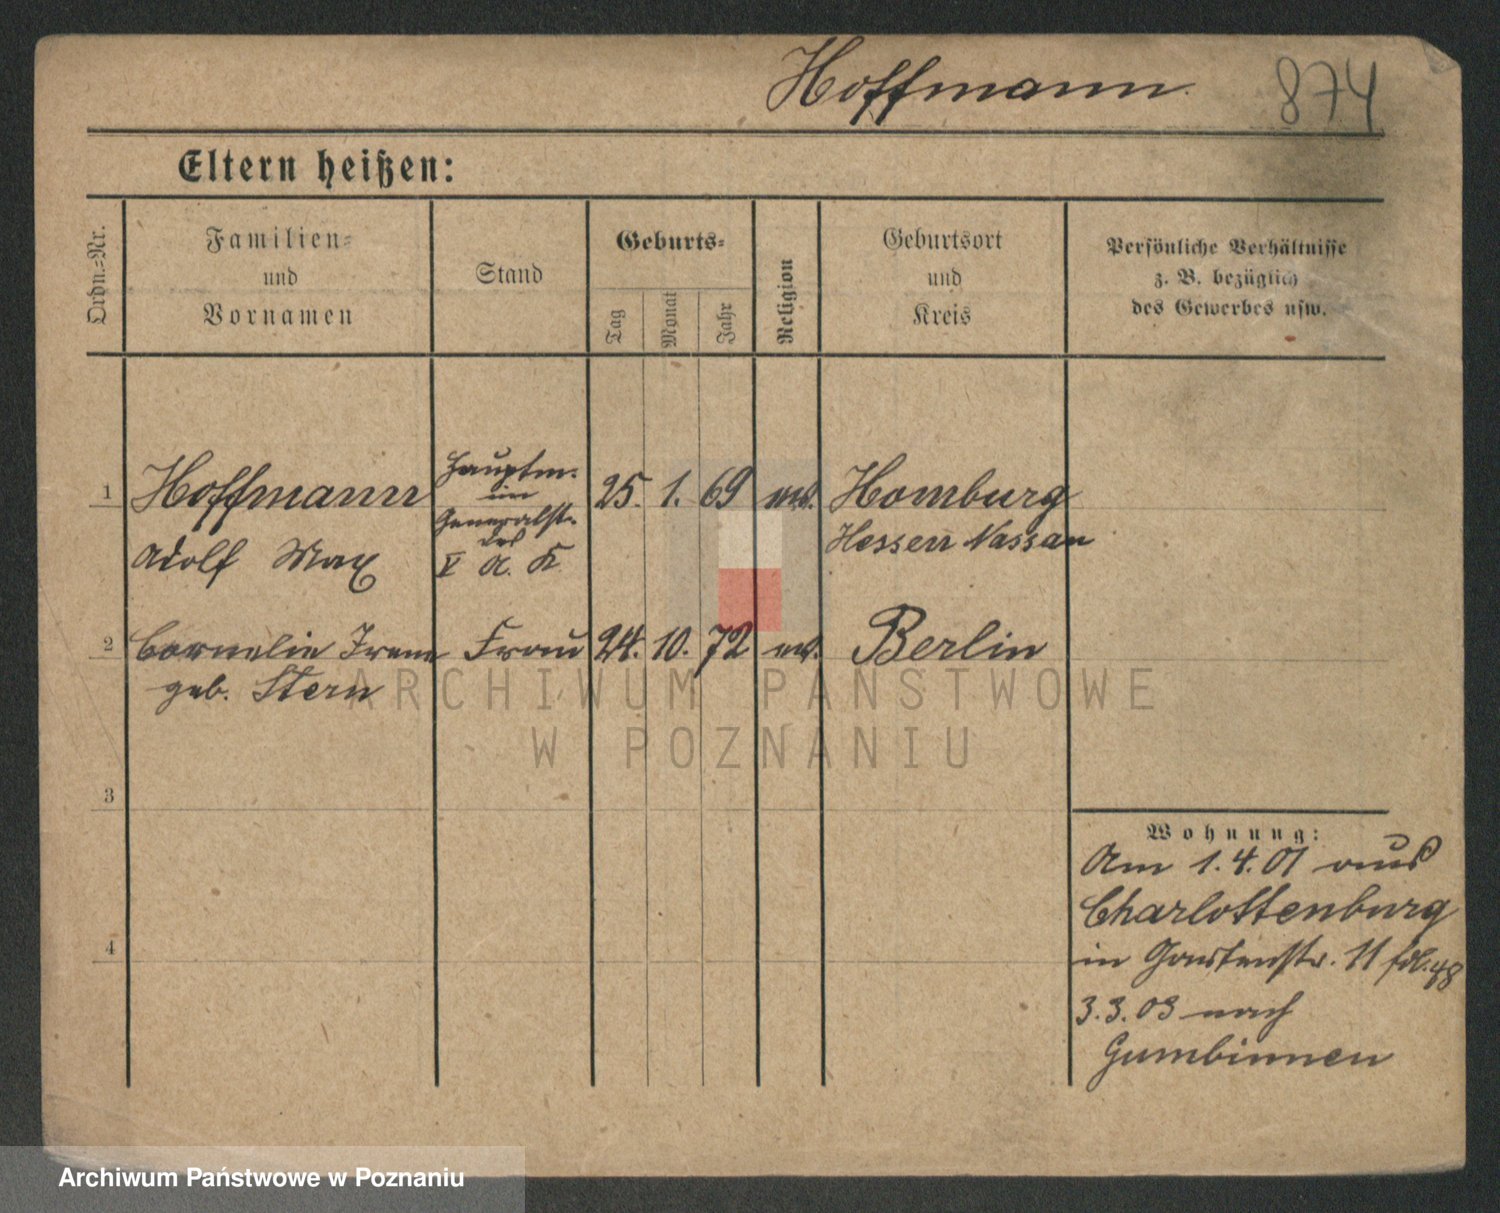 Hoffmann 874
Eltern heißen:
Ordn.-Nr.
Familien-
und
Vornamen
Stand
Geburts-
Tag
Monat
Jahr
Religion
Geburtsort
und
Kreis
Persönliche Verhältnisse
z. B. bezüglich
des Gewerbes usw.
1 Hoffmann
Adolf Max
Hauptm.
im
Generalst.
des
V A. K
25. 1. 69 ev. Homburg
Hessen Nassau
2 Cornelie Irene Frau 24. 10. 72 ev. Berlin
geb. Stern
3
4
Wohnung:
Am 1.4.01 aus
Charlottenburg
in 11 48
3.3.03 nach
Gumbinnen
ARCHIWUM PAŃSTWOWE
W POZNANIU
Archiwum Państwowe w Poznaniu